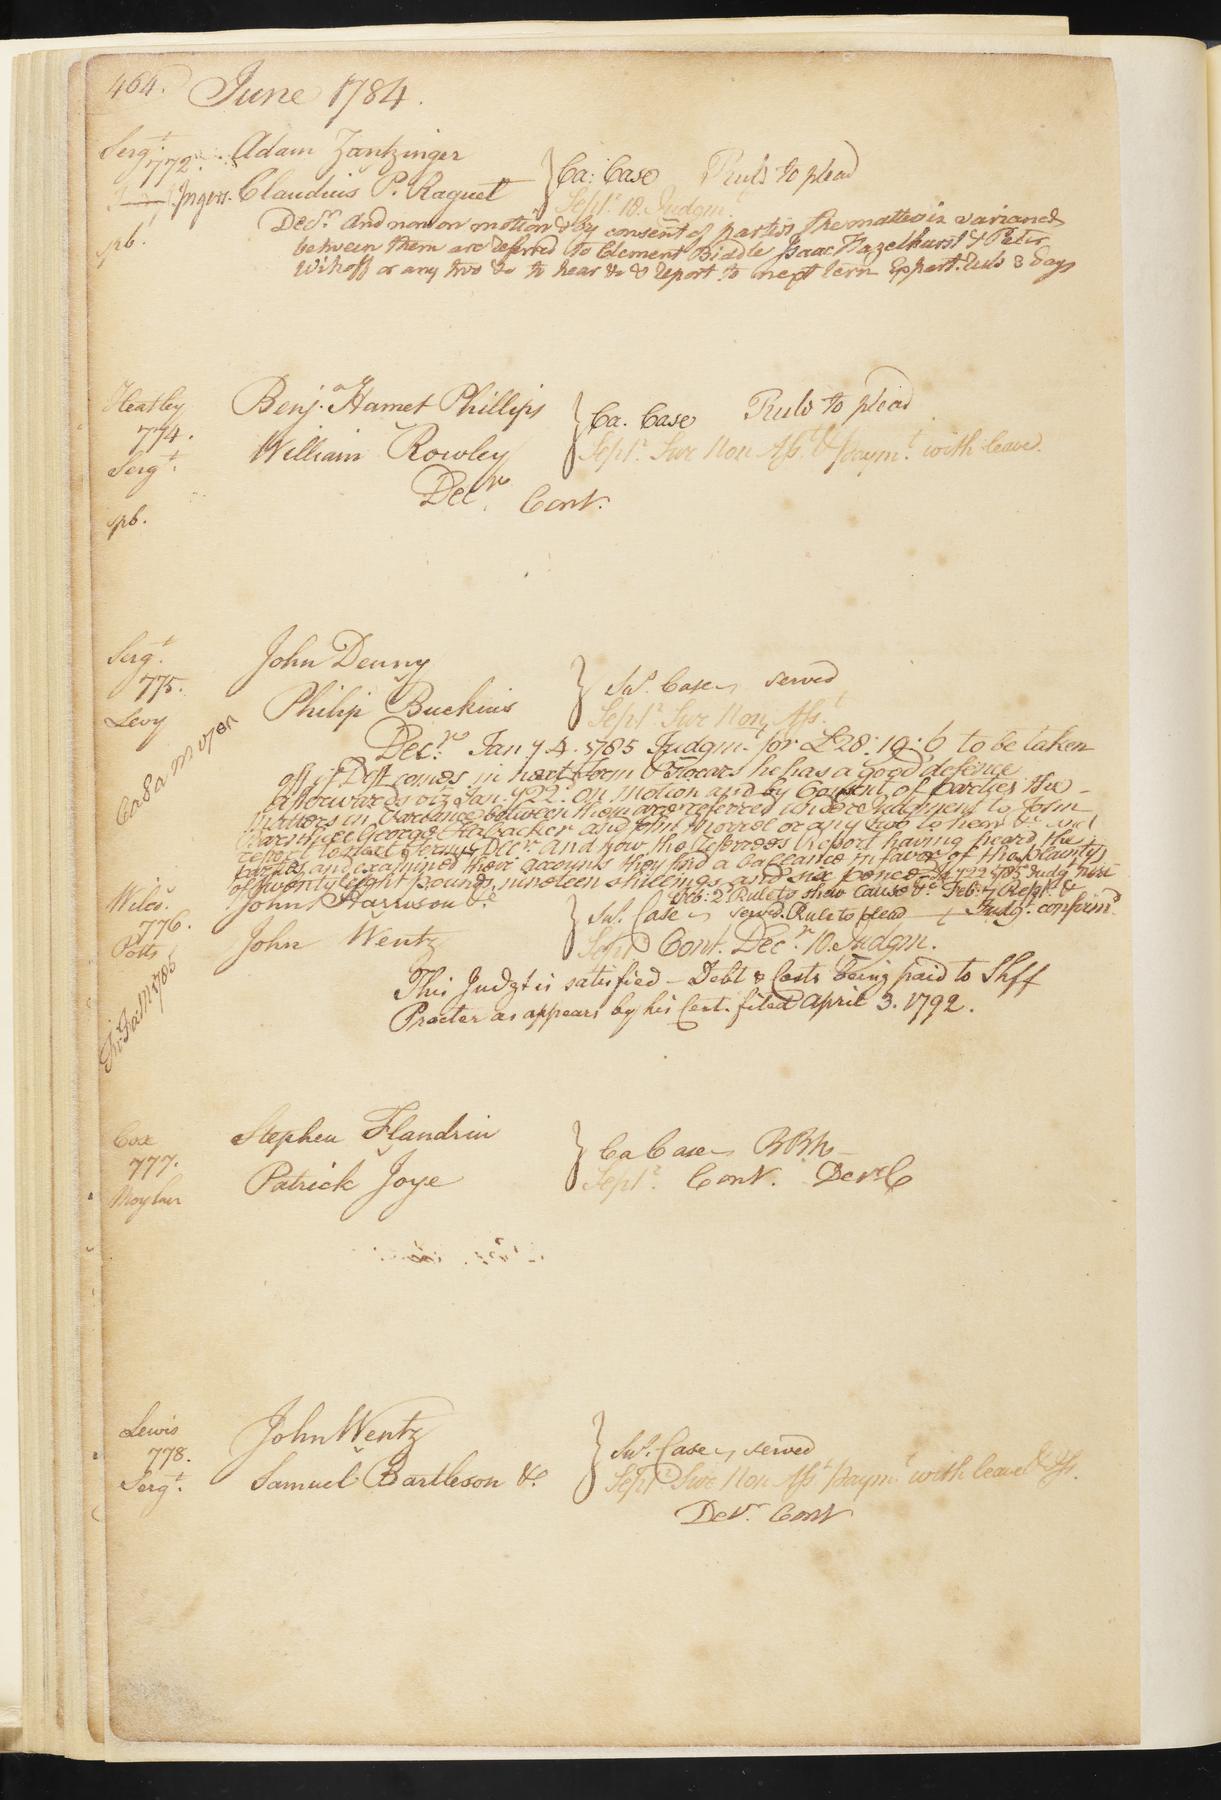 464. June 1784.
Sergt. Adam Zantzinger
772.
Ca: Case Rule to plead
Ingers. Claudius P. Raguet
Sept. 18. Judgm.t
pb.
Decr. And now on motion & by consent of parties the matters in variance
between them are referred to Clement Biddle Isaac Hazelhurst & Peter
Wikoff or any two &c to hear &c & report to next term Exparte Rule 3 days
Heatley Benj.a Hamet Phillips
774. Ca. Case Rule to plead
Sergt. William Rowley
Sept.r Sur Non Ass.t & Paym.t with leave.
Decr. Cont.
pb.
Sergt. John Denny
775. Su.s Case served
Levy Philip Buckius
Sept.r Sur Non Ass.t
Ca Sa m 1785
Decr. Jan y 4. 1785 Judgm.t for £28: 19: 6 to be taken
off if Deft comes in next Term & swears he has a good defence
afterwards viz Jan. y 22.d on motion and by Consent of parties the
matters in variance between them are referred under Judgment to John
George Habacker and John Morrel or any two to hear &c and
report to next Term & Decr. and now the Referees Report having heard the
parties and examined their accounts they find a balance in favor of the Plaintiff
of twenty eight pounds nineteen shillings and six pence Ja y 22 1785 Judg. Nisi
Feb: 2.d Rule to shew cause &c Feb: 7 Rep.t &
Judg.t confirmd.
Wilco. John Harrison &c
776. Su.s Case served. Rule to plead
Potts John Wentz
Sept Cont. Dec.r 10. Judgm.
This Judgt is satisfied – Debt & Costs being paid to Shff
Procter as appears by his Cert. filed April 3. 1792.
Fi Fa M 1785
Cox Stephen Flandrin
777. Ca Case BBh
Moylan Patrick Joye
Sept.r Cont. Decr C
Lewis John Wentz
778. Su.s Case served
Sergt. Samuel Bartleson &c
Sept Sur Non Ass.t Paym.t with leave &c Iss.
Decr. Cont